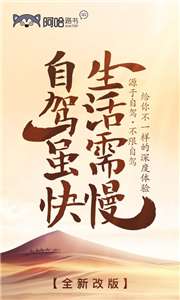 阿哈路书
自驾虽快
生活需慢
源于自驾·不限自驾
给你不一样的深度体验
【全新改版】